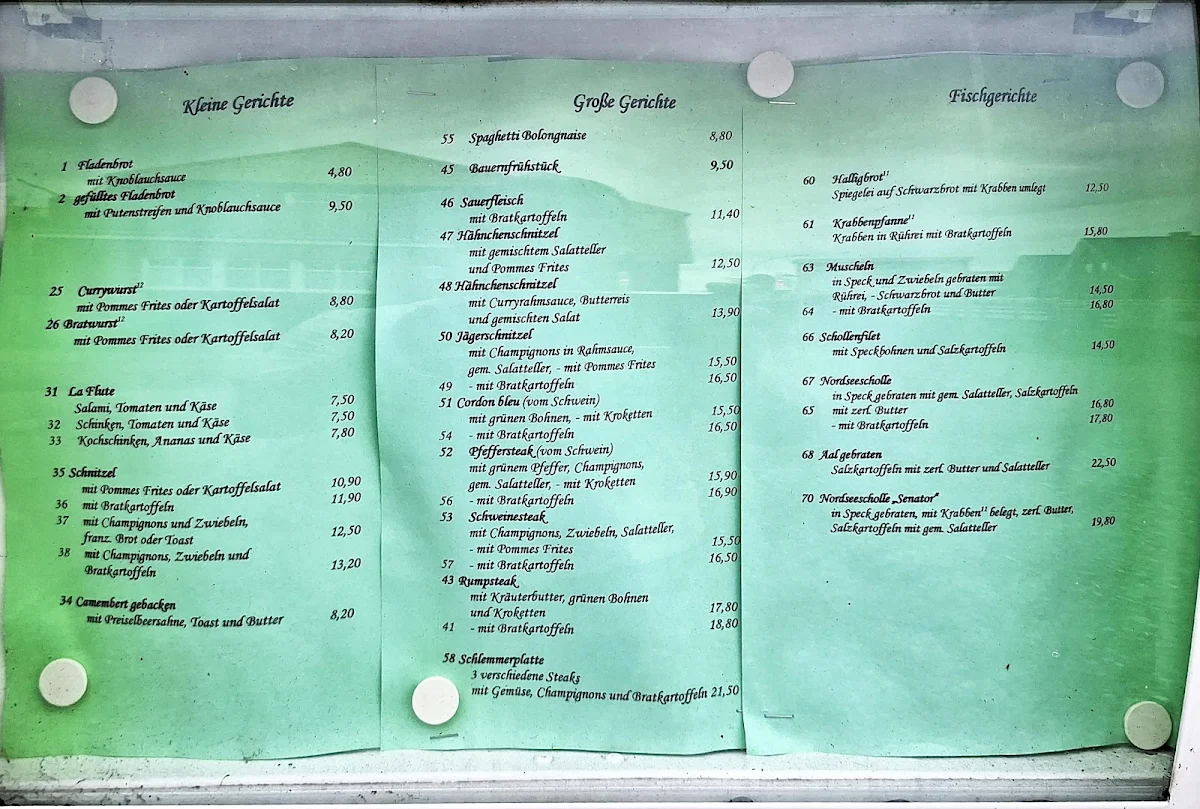 Kleine Gerichte
1 Fladenbrot
mit Knoblauchsauce 4,80
2 gefülltes Fladenbrot
mit Putenstreifen und Knoblauchsauce 9,50
25 Currywurst12
mit Pommes Frites oder Kartoffelsalat 8,80
26 Bratwurst12
mit Pommes Frites oder Kartoffelsalat 8,20
31 La Flute
Salami, Tomaten und Käse 7,50
32 Schinken, Tomaten und Käse 7,50
33 Kochschinken, Ananas und Käse 7,80
35 Schnitzel
mit Pommes Frites oder Kartoffelsalat 10,90
36 mit Bratkartoffeln 11,90
37 mit Champignons und Zwiebeln,
franz. Brot oder Toast 12,50
38 mit Champignons, Zwiebeln und
Bratkartoffeln 13,20
34 Camembert gebacken
mit Preiselbeersahne, Toast und Butter 8,20
Große Gerichte
55 Spaghetti Bolongnaise 8,80
45 Bauernfrühstück 9,50
46 Sauerfleisch
mit Bratkartoffeln 11,40
47 Hähnchenschnitzel
mit gemischtem Salatteller
und Pommes Frites 12,50
48 Hähnchenschnitzel
mit Curryrahmsauce, Butterreis
und gemischten Salat 13,90
50 Jägerschnitzel
mit Champignons in Rahmsauce,
gem. Salatteller, - mit Pommes Frites 15,50
49 - mit Bratkartoffeln 16,50
51 Cordon bleu (vom Schwein)
mit grünen Bohnen, - mit Kroketten 15,50
54 - mit Bratkartoffeln 16,50
52 Pfeffersteak (vom Schwein)
mit grünem Pfeffer, Champignons,
gem. Salatteller, - mit Kroketten 15,90
56 - mit Bratkartoffeln 16,90
53 Schweinesteak
mit Champignons, Zwiebeln, Salatteller,
- mit Pommes Frites 15,50
57 - mit Bratkartoffeln 16,50
43 Rumpsteak
mit Kräuterbutter, grünen Bohnen
und Kroketten 17,80
41 - mit Bratkartoffeln 18,80
58 Schlemmerplatte
3 verschiedene Steaks
mit Gemüse, Champignons und Bratkartoffeln 21,50
Fischgerichte
60 Halligbrot11
Spiegelei auf Schwarzbrot mit Krabben umlegt 12,50
61 Krabbenpfanne11
Krabben in Rührei mit Bratkartoffeln 15,80
63 Muscheln
in Speck und Zwiebeln gebraten mit
Rührei, - Schwarzbrot und Butter 14,50
64 - mit Bratkartoffeln 16,80
66 Schollenfilet
mit Speckbohnen und Salzkartoffeln 14,50
67 Nordseescholle
in Speck gebraten mit gem. Salatteller, Salzkartoffeln
65 mit zerl. Butter 16,80
- mit Bratkartoffeln 17,80
68 Aal gebraten
Salzkartoffeln mit zerl. Butter und Salatteller 22,50
70 Nordseescholle „Senator"
in Speck gebraten, mit Krabben11 belegt, zerl. Butter,
Salzkartoffeln mit gem. Salatteller 19,80